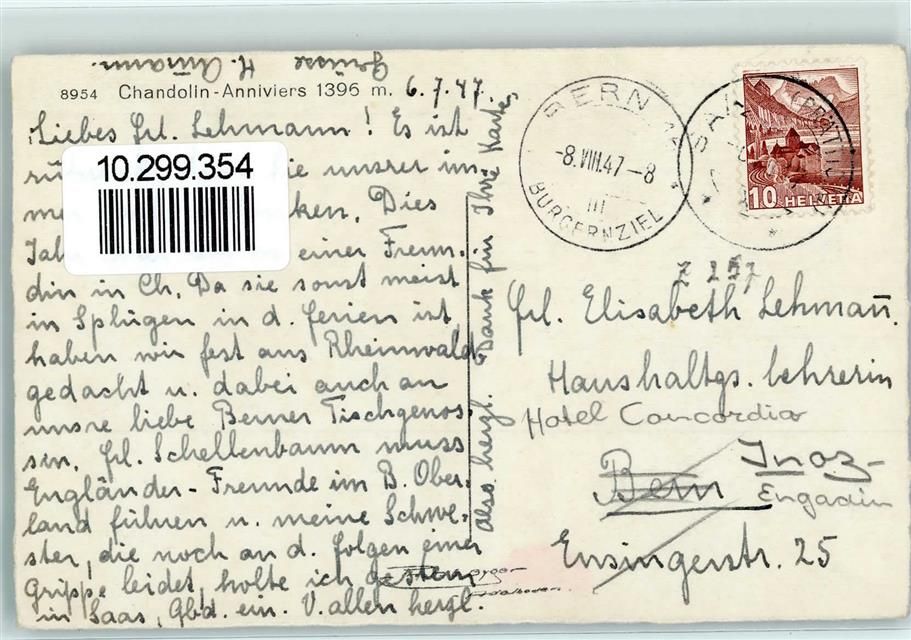 Grüsse H. Aumann.
8954 Chandolin-Anniviers 1396 m. 6.7.47.
Liebes Frl. Lehmann! Es ist
10.299.354
die unserer im-
mer
Dies
Jahr
einer Freun-
din in Ch. Da sie sonst meist
in Splügen in d. Ferien ist,
haben wir fest ans Rheinwald
gedacht u. dabei auch an
unsre liebe Berner Tischgenos-
sin. Frl. Schellenbaum muss
Engländer-Freunde im B. Ober-
land führen u. meine Schwe-
ster, die noch an d. Folgen einer
Grippe leidet, holte ich gestern
in Saas, Gbd. ein. V. allen herzl.
Also herzl. Dank für Ihre Karte,
BERN
-8.VIII.47-8
III
BURGERNZIEL
10 HELVETIA
Z 257
Frl. Elisabeth Lehmann.
Haushaltgs. lehrerin
Hotel Concordia
Bern
Zuoz-
Engadin
Ensingerstr. 25